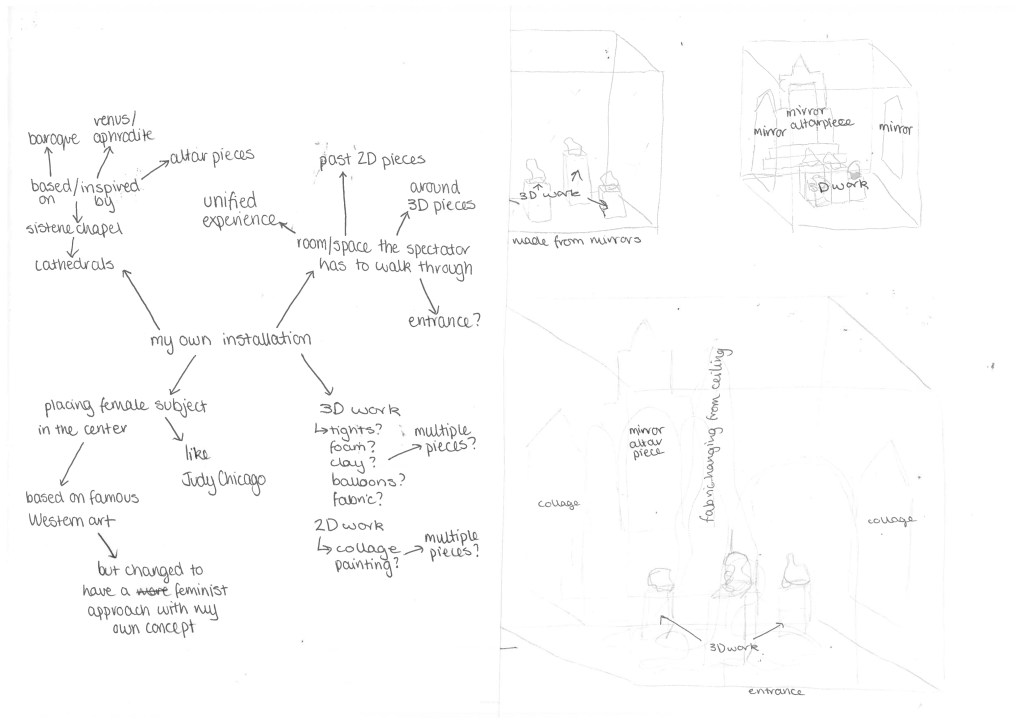 venus/
aphrodite
baroque
altar pieces
based/inspired
on by
sistene chapel
cathedrals
past 2D pieces
unified
experience
around
3D pieces
room/space the spectator
has to walk through
entrance?
my own installation
placing female subject
in the center
like
Judy Chicago
based on famous
Western art
but changed to
have a more feminist
approach with my
own concept
3D work
↳tights?
foam?
clay?
balloons?
fabric?
multiple
pieces?
2D work
↳collage
painting?
multiple
pieces?
3D work
made from mirrors
mirror
mirror
altarpiece
mirror
D work
fabric hanging from ceiling
mirror
altar
piece
collage
collage
3D work
entrance